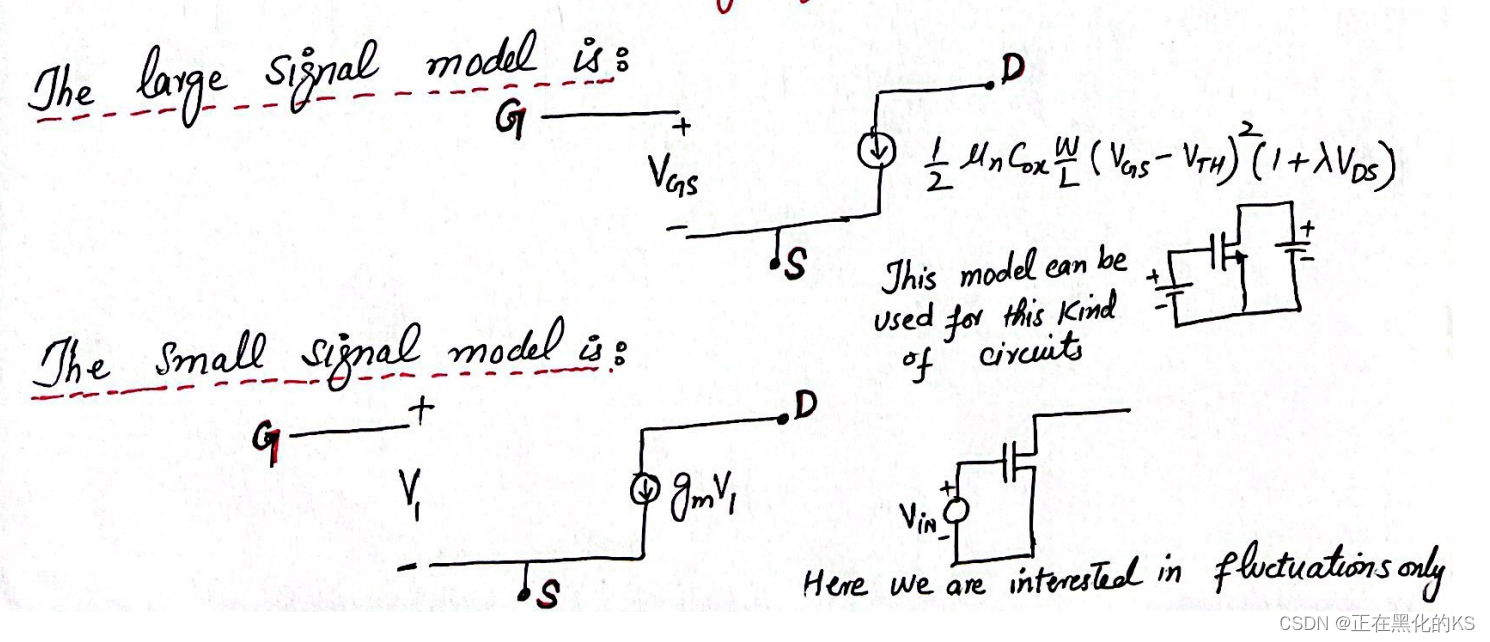 The large signal model is:
G
+
VGS
-
S
D
1/2 μn Cox W/L (VGS - VTH)² (1 + λVDS)
This model can be
used for this kind
of circuits
+
-
+
-
The small signal model is:
G
+
V1
-
S
D
gmV1
+
VIN
-
Here we are interested in fluctuations only
CSDN @正在黑化的KS